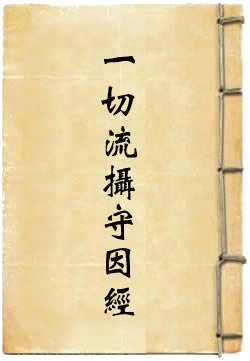 一切流攝守因經